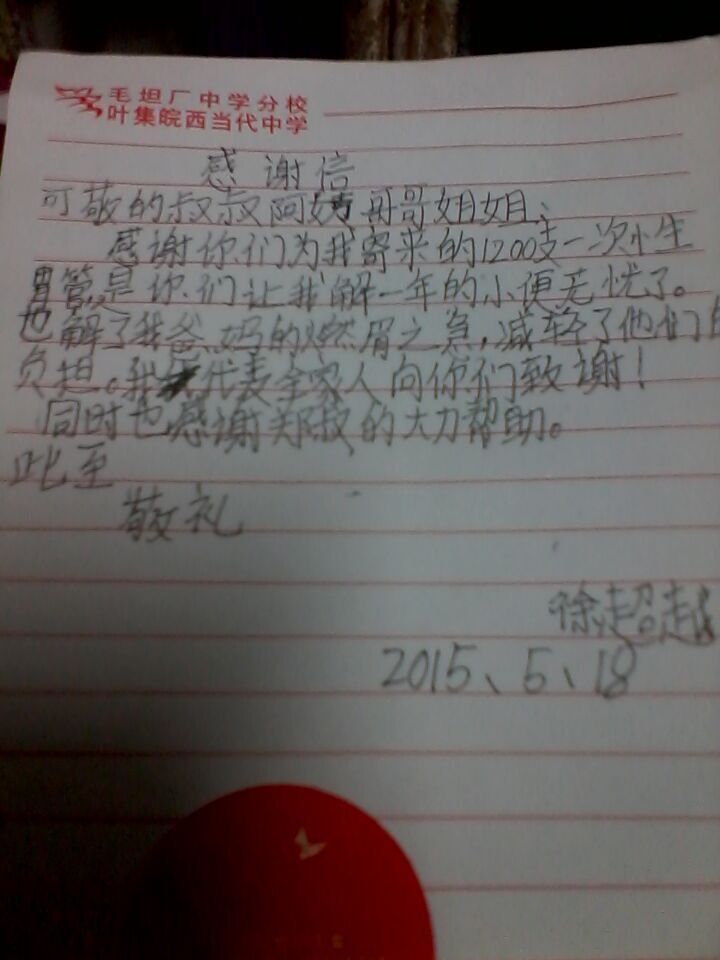 毛坦厂中学分校
叶集皖西当代中学
感谢信
可敬的叔叔阿姨哥哥姐姐、
感谢你们为我寄来的1200支一次性
胃管,是你们让我解一年的小便无忧了。
也解了我爸妈的燃眉之急,减轻了他们的
负担。我代表全家人向你们致谢!
同时也感谢郑叔的大力帮助。
此至
敬礼
徐超越
2015、5、18